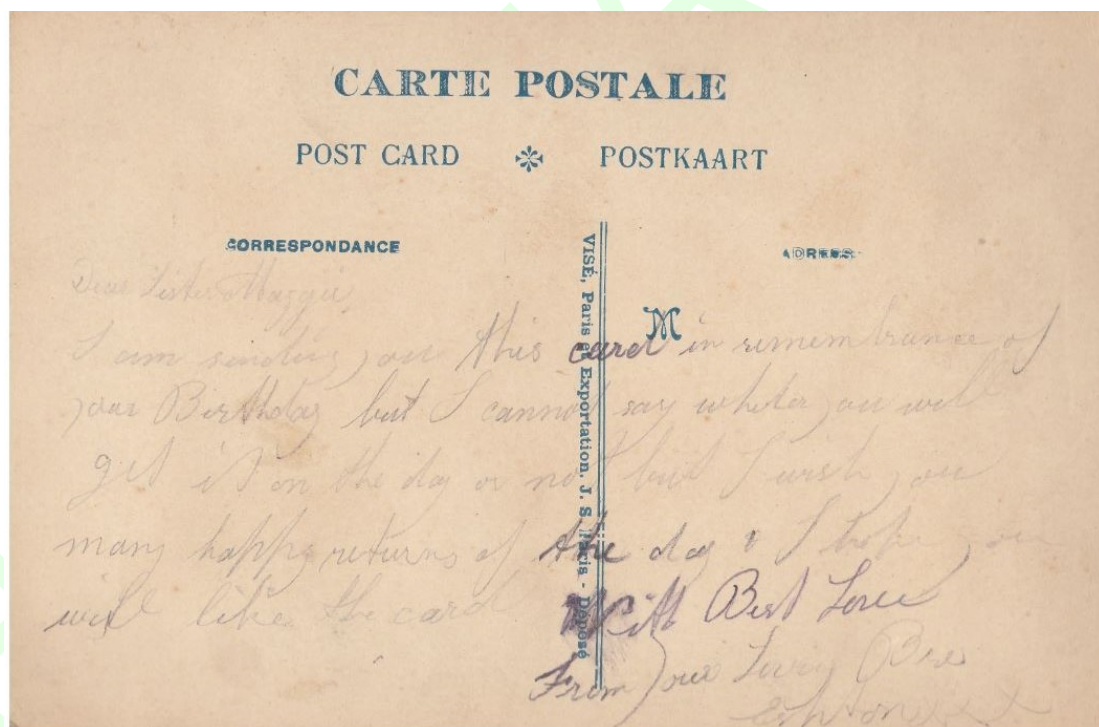 CARTE POSTALE
POST CARD POSTKAART
CORRESPONDANCE
ADRESS
VISÉ, Paris et Exportation. J. S. Paris - Déposé
M
Dear Sister Maggie
I am sending you this card in rimembrance of
your Birthday but I cannot say wheter you will
get it on the day or not but I wish you
many happy returns of the day & I hope you
will like the card
With Best Love
From your Loving Bro